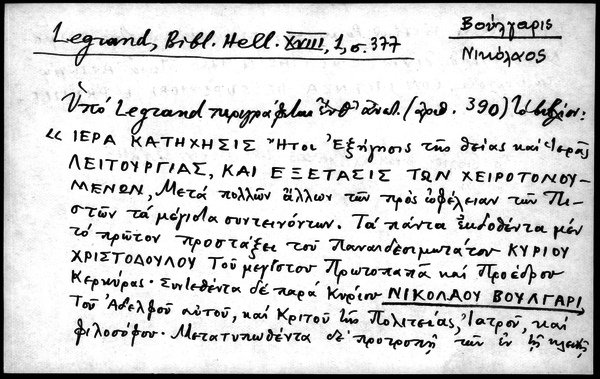 Βούλγαρις
Νικόλαος
Legrand, Bibl. Hell. XVIII, 1, σ. 377
Ὑπό Legrand περιγράφεται ἐνθ' ἀνωτ. (ἀριθ. 390) τό βιβλίον:
"ΙΕΡΑ ΚΑΤΗΧΗΣΙΣ Ἤτοι Ἐξήγησις τῆς θείας καί Ἱερᾶς
ΛΕΙΤΟΥΡΓΙΑΣ, ΚΑΙ ΕΞΕΤΑΣΙΣ ΤΩΝ ΧΕΙΡΟΤΟΝΟΥ-
ΜΕΝΩΝ, Μετά πολλῶν ἄλλων τῶν πρός ὠφέλειαν τῶν Πι-
στῶν τά μέγιστα συντεινόντων. Τά πάντα ἐκδοθέντα μέν
τό πρῶτον προστάξει τοῦ Παναιδεσιμωτάτου ΚΥΡΙΟΥ
ΧΡΙΣΤΟΔΟΥΛΟΥ Τοῦ μεγίστου Πρωτοπαπᾶ καί Προέδρου
Κερκύρας. Συντεθέντα δέ παρά Κυρίου ΝΙΚΟΛΑΟΥ ΒΟΥΛΓΑΡΙ,
Τοῦ Ἀδελφοῦ αὐτοῦ, καί Κριτοῦ τῆς Πολιτείας, Ἰατροῦ, καί
φιλοσόφου. Μετατυπωθέντα δέ προτροπῇ τῶν ἐν τῇ κλεινῇ